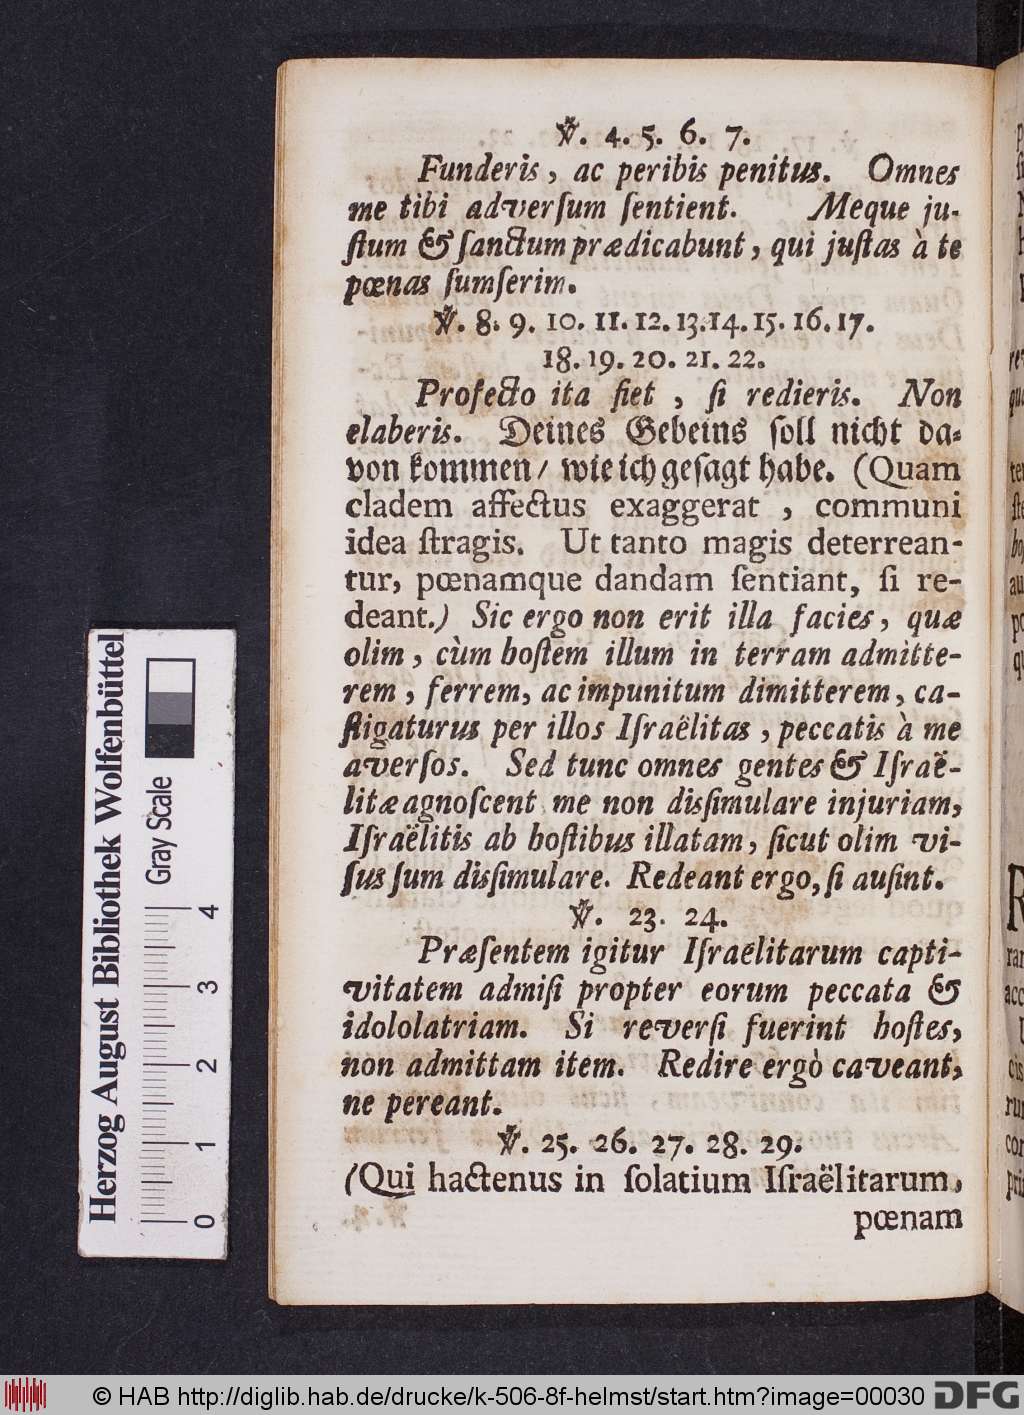 ℣. 4. 5. 6. 7.
Funderis, ac peribis penitus. Omnes
me tibi adverſum ſentient. Meque ju-
ſtum & ſanctum prædicabunt, qui juſtas à te
pœnas ſumſerim.
℣. 8. 9. 10. 11. 12. 13. 14. 15. 16. 17.
18. 19. 20. 21. 22.
Profecto ita fiet, ſi redieris. Non
elaberis. Deines Gebeins ſoll nicht da-
von kommen/ wie ich geſagt habe. (Quam
cladem affectus exaggerat, communi
idea ſtragis. Ut tanto magis deterrean-
tur, pœnamque dandam ſentiant, ſi re-
deant.) Sic ergo non erit illa facies, quæ
olim, cùm hoſtem illum in terram admitte-
rem, ferrem, ac impunitum dimitterem, ca-
ſtigaturus per illos Iſraëlitas, peccatis à me
averſos. Sed tunc omnes gentes & Iſraë-
litæ agnoſcent me non disſimulare injuriam,
Iſraëlitis ab hoſtibus illatam, ſicut olim vi-
ſus ſum disſimulare. Redeant ergo, ſi auſint.
℣. 23. 24.
Præſentem igitur Iſraëlitarum capti-
vitatem admiſi propter eorum peccata &
idololatriam. Si reverſi fuerint hoſtes,
non admittam item. Redire ergò caveant,
ne pereant.
℣. 25. 26. 27. 28. 29.
(Qui hactenus in ſolatium Iſraëlitarum,
pœnam
Herzog August Bibliothek Wolfenbüttel
Gray Scale
0 1 2 3 4
© HAB http://diglib.hab.de/drucke/k-506-8f-helmst/start.htm?image=00030
DFG